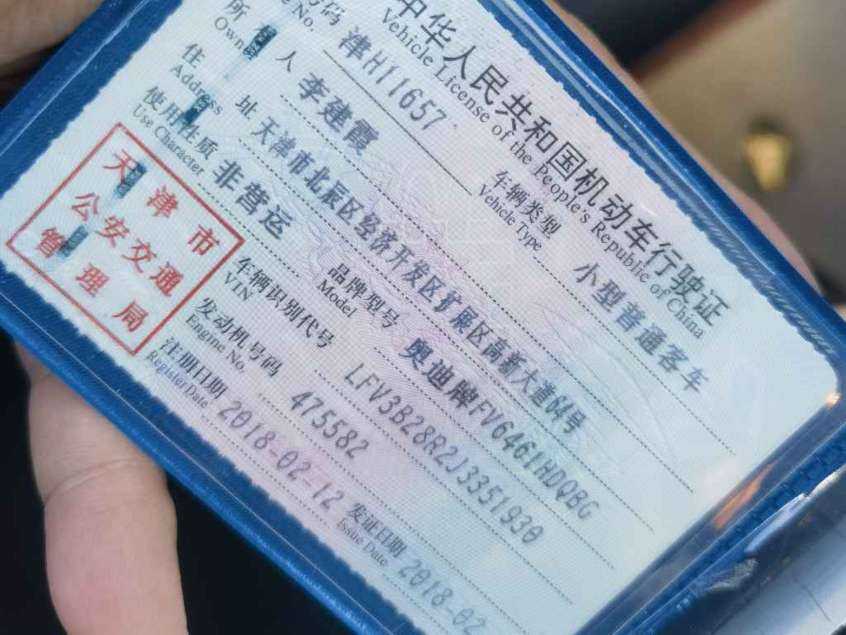 中华人民共和国机动车行驶证
Vehicle License of the People's Republic of China
号码
津H11657
车辆类型
小型普通客车
No.
Vehicle Type
所 人
李建霞
Owner
住 址
天津市北辰区经济开发区扩展区高新大道64号
Address
使用性质
非营运
品牌型号
奥迪牌FV6461HDQBG
Use Character
Model
天津市
公安交通
管理局
车辆识别代号
LFV3B28R2J3351930
VIN
发动机号码
475582
Engine No.
注册日期
2018-02-12
发证日期
2018-02
Register Date
Issue Date